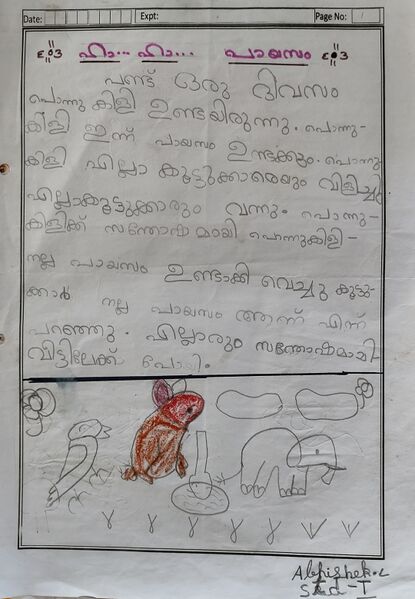 Date: Expt: Page No: 1
ഹാ... ഹാ... പായസം
പണ്ട് ഒരു ദിവസം
പൊന്നു കിളി ഉണ്ടയിരുന്നു. പൊന്നു-
കിളി ഇന്ന് പായസം ഉണ്ടക്കും. പൊന്നു
കിളി എല്ലാ കൂട്ടുക്കാരെയും വിളിച്ചു
എല്ലാകൂട്ടുക്കാരും വന്നു. പൊന്നു-
കിളിക്ക് സന്തോഷമായി പൊന്നുകിളി-
നല്ല പായസം ഉണ്ടാക്കി വെച്ചു കൂട്ടു-
ക്കാർ നല്ല പായസം ആണ് എന്ന്
പറഞ്ഞു. എല്ലാരും സന്തോഷമാമി-
വിട്ടിലേക്ക് പോമി.
Abhishek.L
Std-I